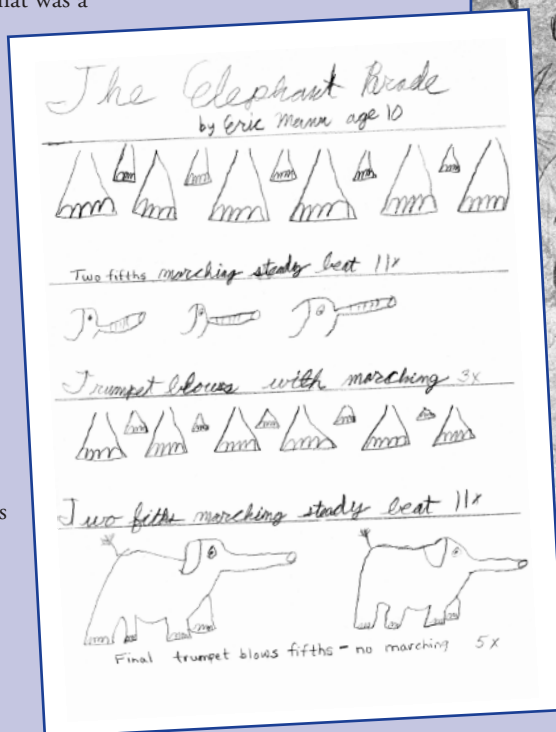 hat was a
The Elephant Parade
by Eric Mann age 10
Two fifths marching steady beat 11x
Trumpet blows with marching 3x
s
Two fifths marching steady beat 11x
Final trumpet blows fifths - no marching 5x